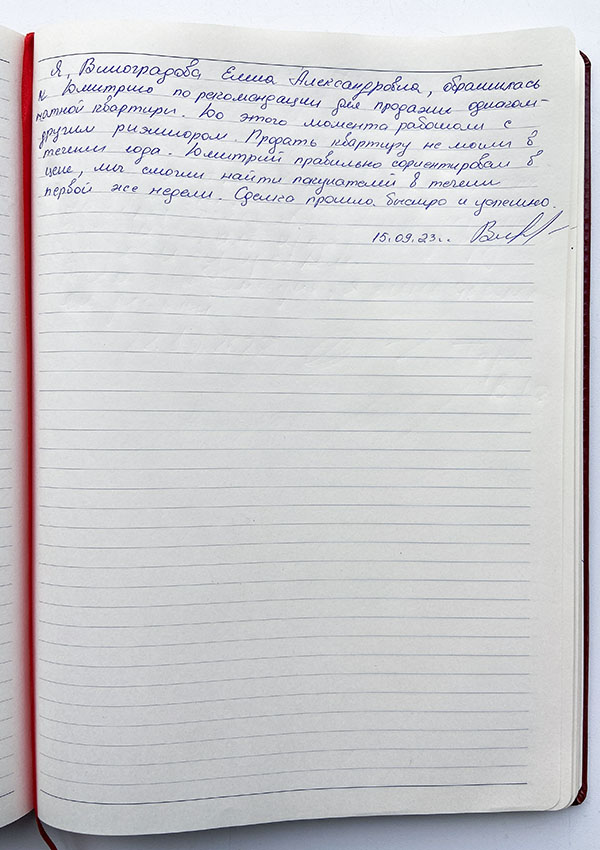 Я, Виноградова Елена Александровна, обратилась
к Дмитрию по рекомандации для продажи одноком-
натной квартири. До этого момента работали с
другим риэлтором. Продать квартиру не могли в
течении года. Дмитрий правильно сориентировал в
цене, мы смогли найти покупателей в течении
первой же недели. Сделка прошла быстро и успешно.
15.09.23г.